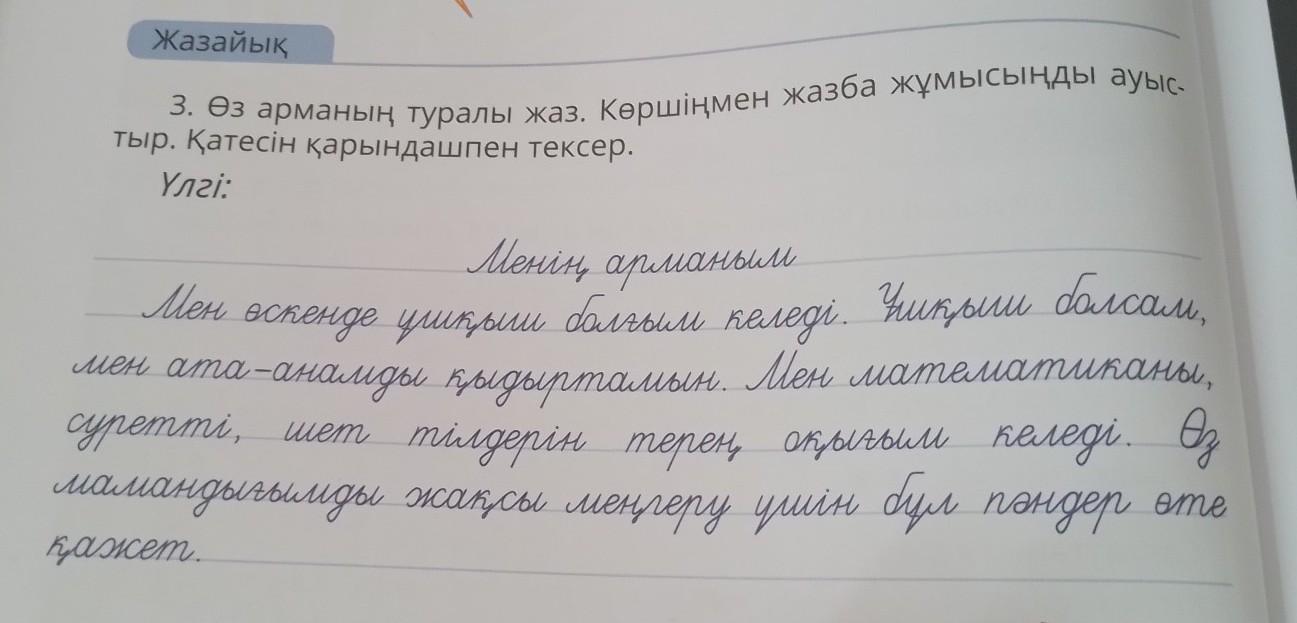 Жазайық
3. Өз арманың туралы жаз. Көршіңмен жазба жұмысыңды ауыс-
тыр. Қатесін қарындашпен тексер.
Үлгі:
Менің арманым
Мен өскенде ұшқыш болғым келеді. Ұшқыш болсам,
мен ата-анамды қыдыртамын. Мен математиканы,
суретті, шет тілдерін терең оқығым келеді. Өз
мамандығымды жақсы меңгеру үшін бұл пәндер өте
қажет.